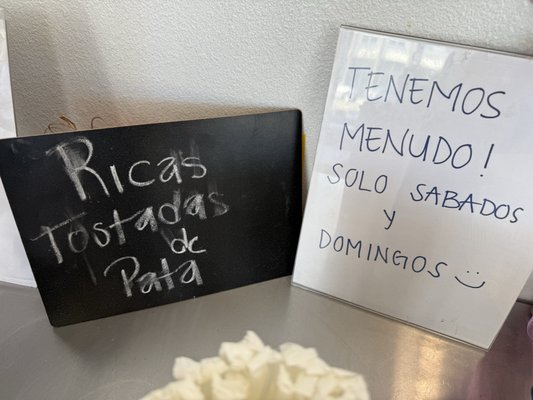 Ricas
Tostadas
de
Pata
TENEMOS
MENUDO!
SOLO SABADOS
Y
DOMINGOS